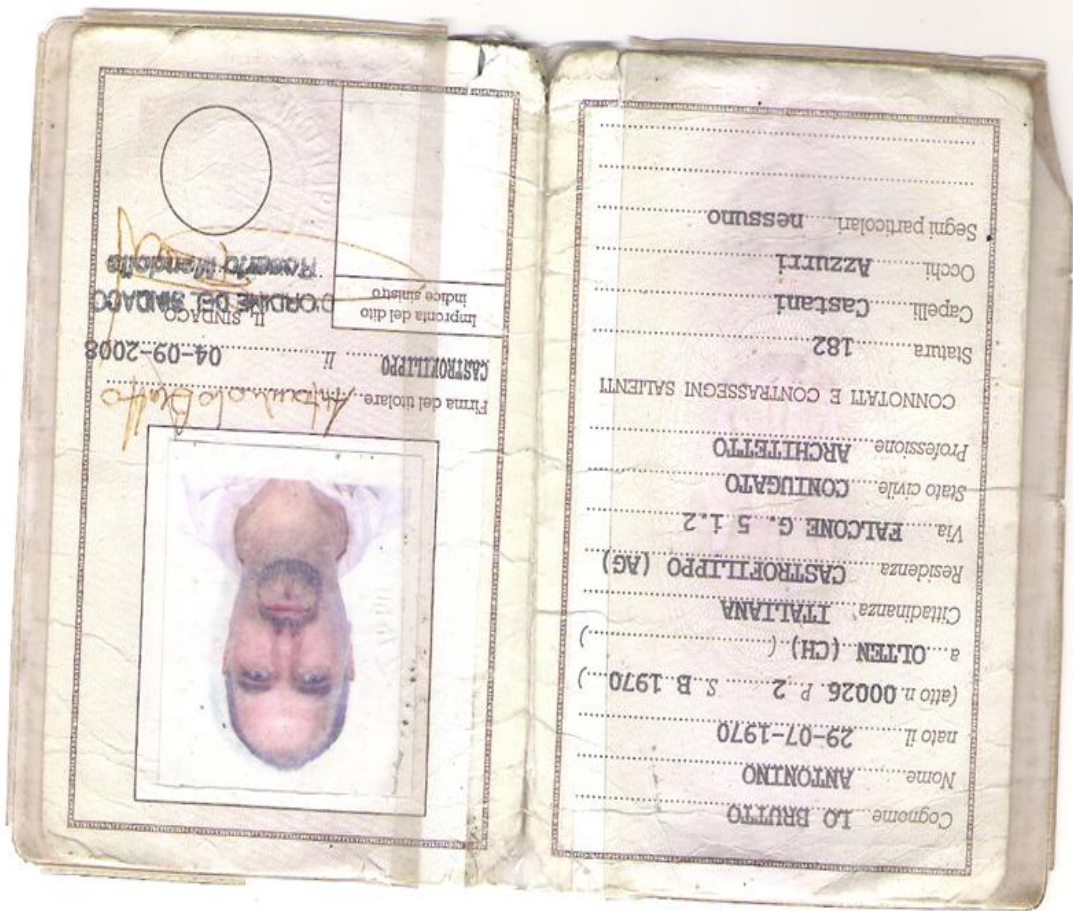 Cognome LO BRUTTO
Nome ANTONINO
nato il 29-07-1970
(atto n. 00026 P. 2 S. B 1970)
a OLTEN (CH) ( )
Cittadinanza ITALIANA
Residenza CASTROFILIPPO (AG)
Via FALCONE G. 5 i.2
Stato civile CONIUGATO
Professione ARCHITETTO
CONNOTATI E CONTRASSEGNI SALIENTI
Statura 182
Capelli Castani
Occhi Azzurri
Segni particolari nessuno
Firma del titolare
CASTROFILIPPO lì 04-09-2008
Impronta del dito
indice sinistro
IL SINDACO
D'ORDINE DEL SINDACO